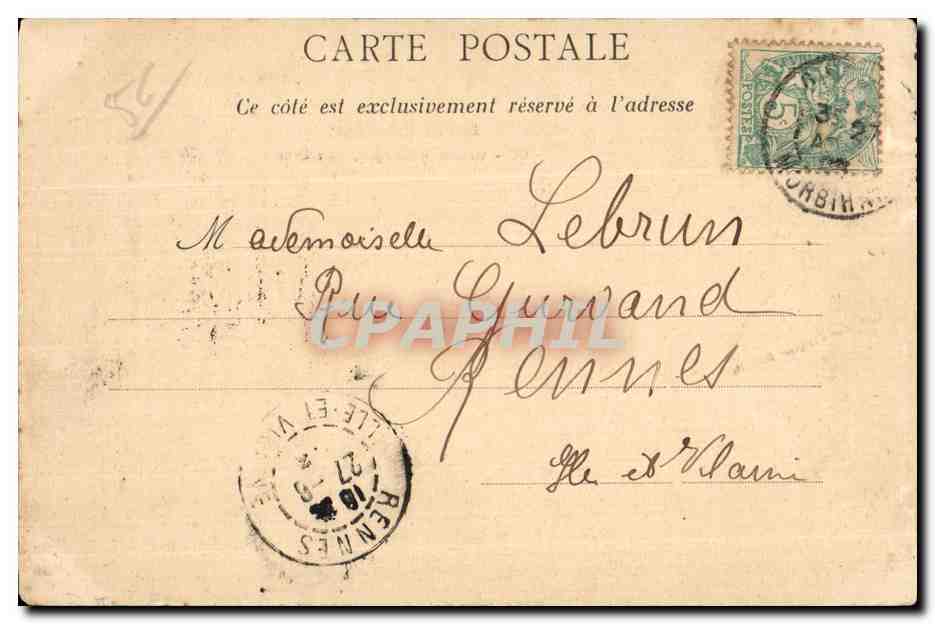 CARTE POSTALE
Ce côté est exclusivement réservé à l'adresse
56
POSTES
5c
3
MORBIHAN
Mademoiselle Lebrun
Rue Gurvand
CPAPHIL
Rennes
Ille et Vilaine
RENNES
ILLE-ET-VILAINE
27